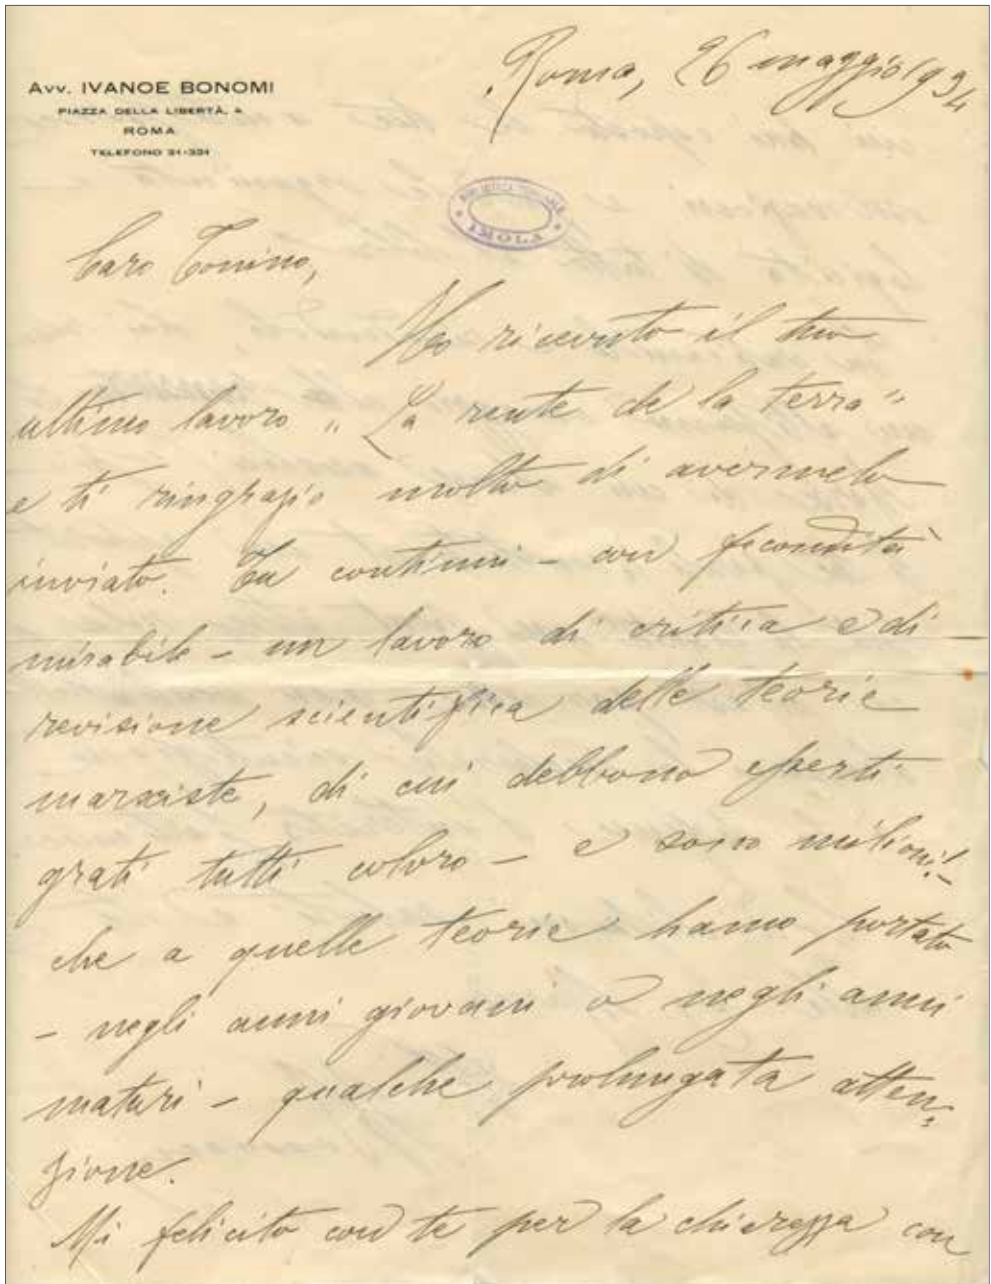 Avv. IVANOE BONOMI
PIAZZA DELLA LIBERTÀ, 4
ROMA
TELEFONO 31-331
Roma, 26 maggio 1934
BIBLIOTECA COMUNALE
IMOLA
Caro Tonino,
Ho ricevuto il tuo
ultimo lavoro "La rente de la terra"
e ti ringrazio molto di avermelo
inviato. Tu continui - con fecondità
mirabile - un lavoro di critica e di
revisione scientifica delle teorie
marxiste, di cui debbono esserti
grati tutti coloro - e sono milioni! -
che a quelle teorie hanno portato
- negli anni giovani o negli anni
maturi - qualche prolungata atten-
zione.
Mi felicito con te per la chiarezza con